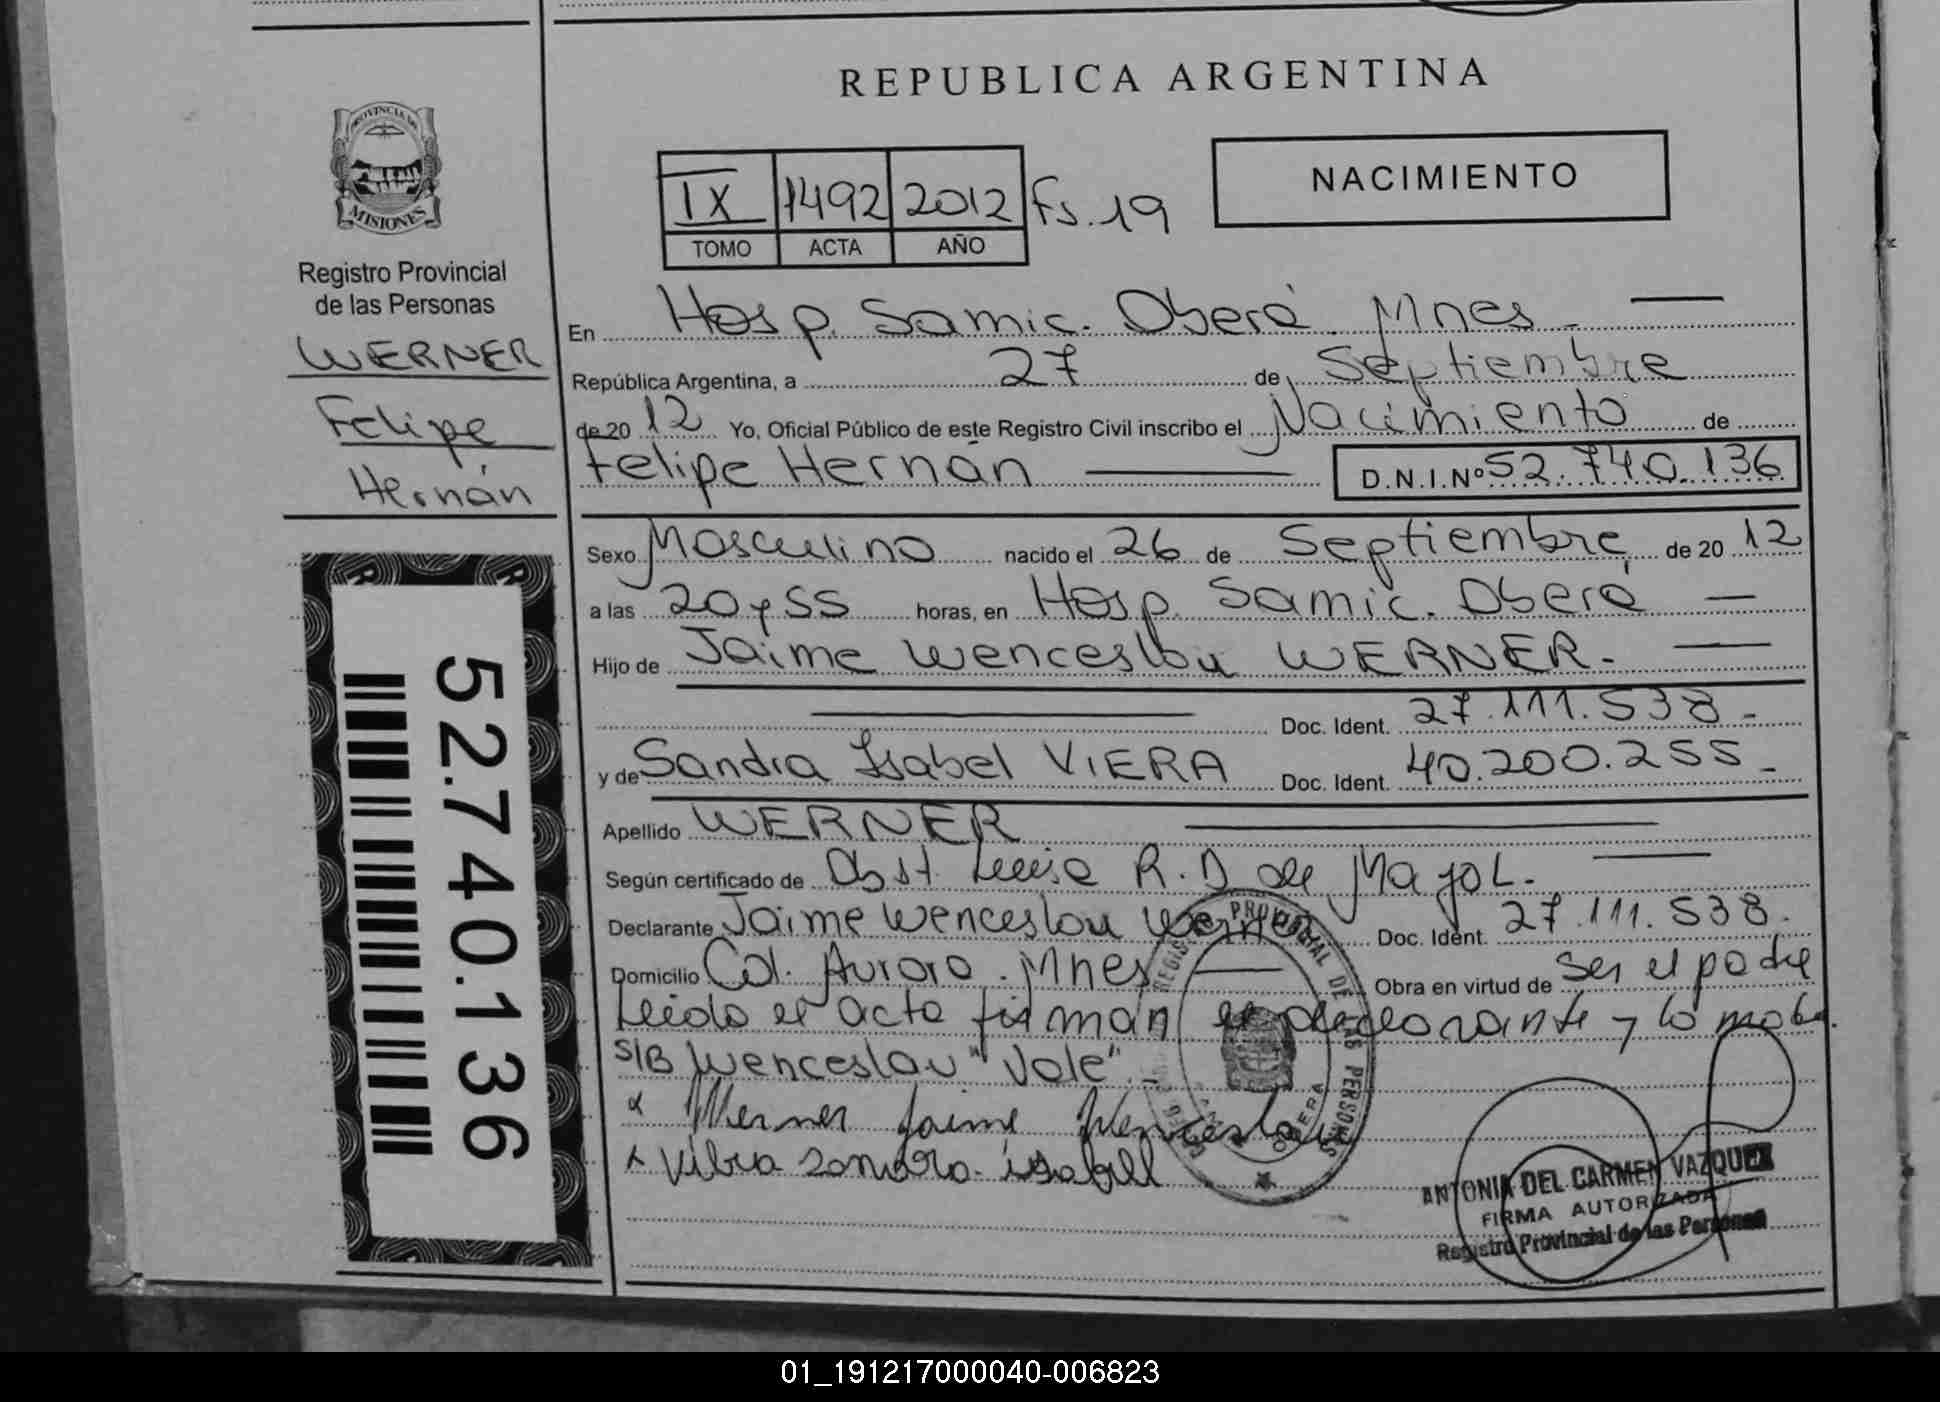 REPUBLICA ARGENTINA
PROVINCIA DE
MISIONES
Registro Provincial
de las Personas
WERNER
Felipe
Hernán
52.740.136
IX 1492 2012 Fs. 19
TOMO ACTA AÑO
NACIMIENTO
En Hosp. Samic. Oberá. Mnes.
República Argentina, a 27 de Septiembre
de 20 12 Yo, Oficial Público de este Registro Civil inscribo el Nacimiento de
Felipe Hernán D.N.I.Nº 52.740.136
Sexo Masculino nacido el 26 de Septiembre de 20 12
a las 20 y 55 horas, en Hosp. Samic. Oberá
Hijo de Jaime Wenceslou WERNER.
Doc. Ident. 27.111.538
y de Sandra Isabel VIERA Doc. Ident. 40.200.255
Apellido WERNER
Según certificado de Obst. Luisa R. D de Mayol.
Declarante Jaime Wenceslou Werner Doc. Ident. 27.111.538.
Domicilio Col. Aurora. Mnes Obra en virtud de ser el padre
Leido el acta firman el declarante y la madre.
S/B Wenceslau "Vale".
x Werner Jaime Wenceslau
x Vibra sandra isabell
REGISTRO PROVINCIAL DE LAS PERSONAS
OBERA
ANTONIA DEL CARMEN VAZQUEZ
FIRMA AUTORIZADA
Registro Provincial de las Personas
01_191217000040-006823